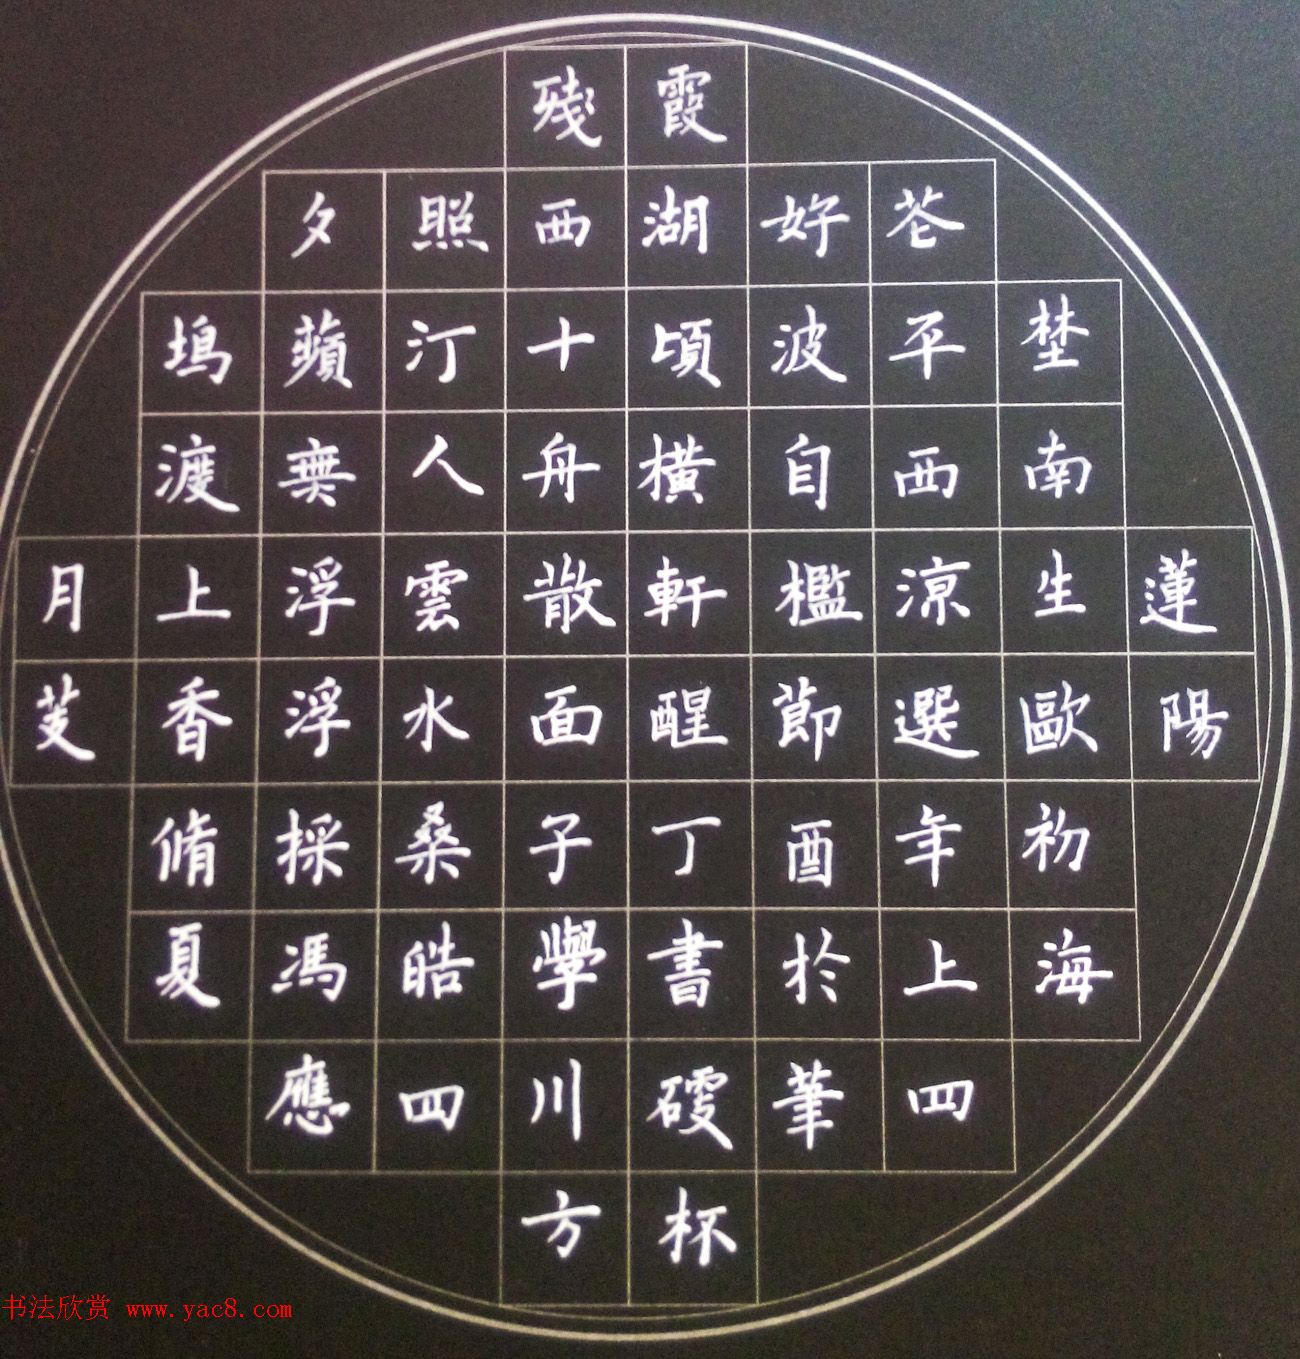 殘霞
夕照西湖好花
塢蘋汀十頃波平埜
渡無人舟橫自西南
月上浮雲散軒檻涼生蓮
芰香浮水面醒節選歐陽
脩採桑子丁酉年初
夏馮皓學書於上海
應四川硬筆四
方杯
书法欣赏 www.yac8.com